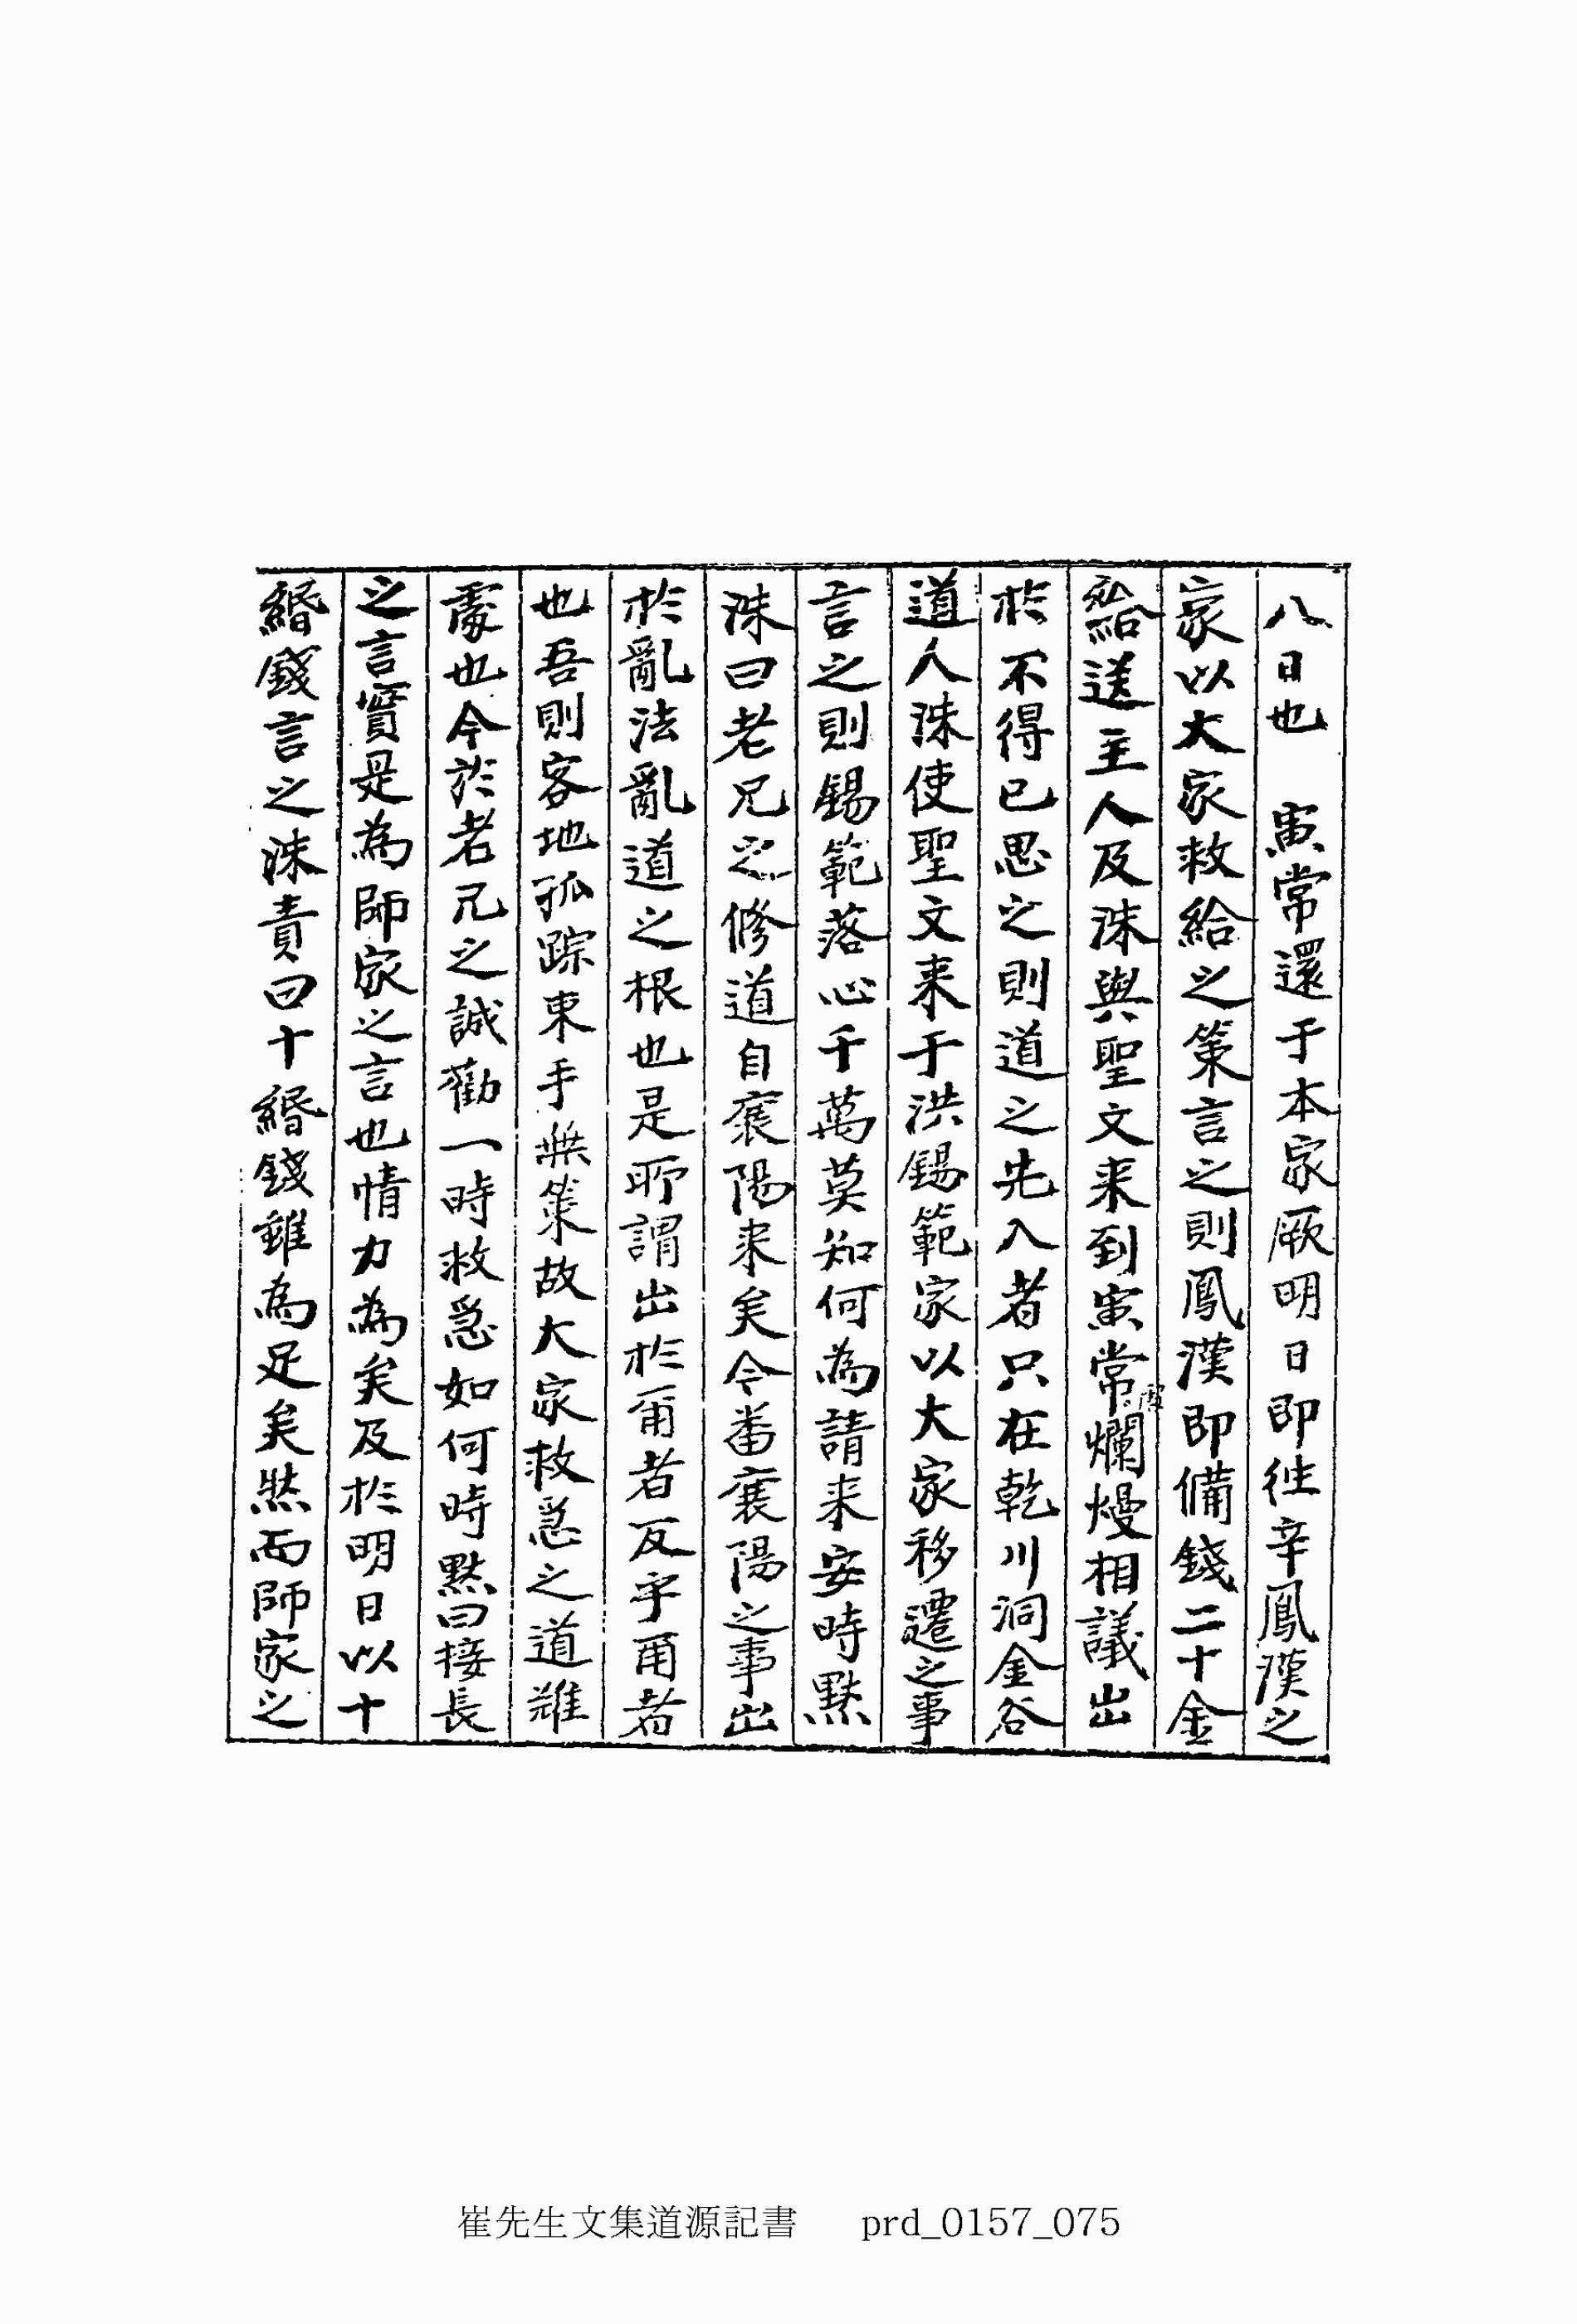 八日也 寅常還于本家厥明日即往辛鳳漢之
家以大家救給之策言之則鳳漢即備錢二十金
給送主人及洙與聖文来到寅常家爛熳相議出
於不得已思之則道之先入者只在乾川洞金谷
道人洙使聖文来于洪錫範家以大家移遷之事
言之則錫範落心千萬莫知何為請来安時黙
洙曰老兄之修道自襄陽来矣今番襄陽之事出
於亂法亂道之根也是所謂出於甭者反乎甭者
也吾則客地孤踪束手無策故大家救急之道難
處也今於老兄之誠勸一時救急如何時黙曰接長
之言實是為師家之言也情力為矣及於明日以十
緡錢言之洙責曰十緡錢雖為足矣然而師家之
崔先生文集道源記書 prd_0157_075